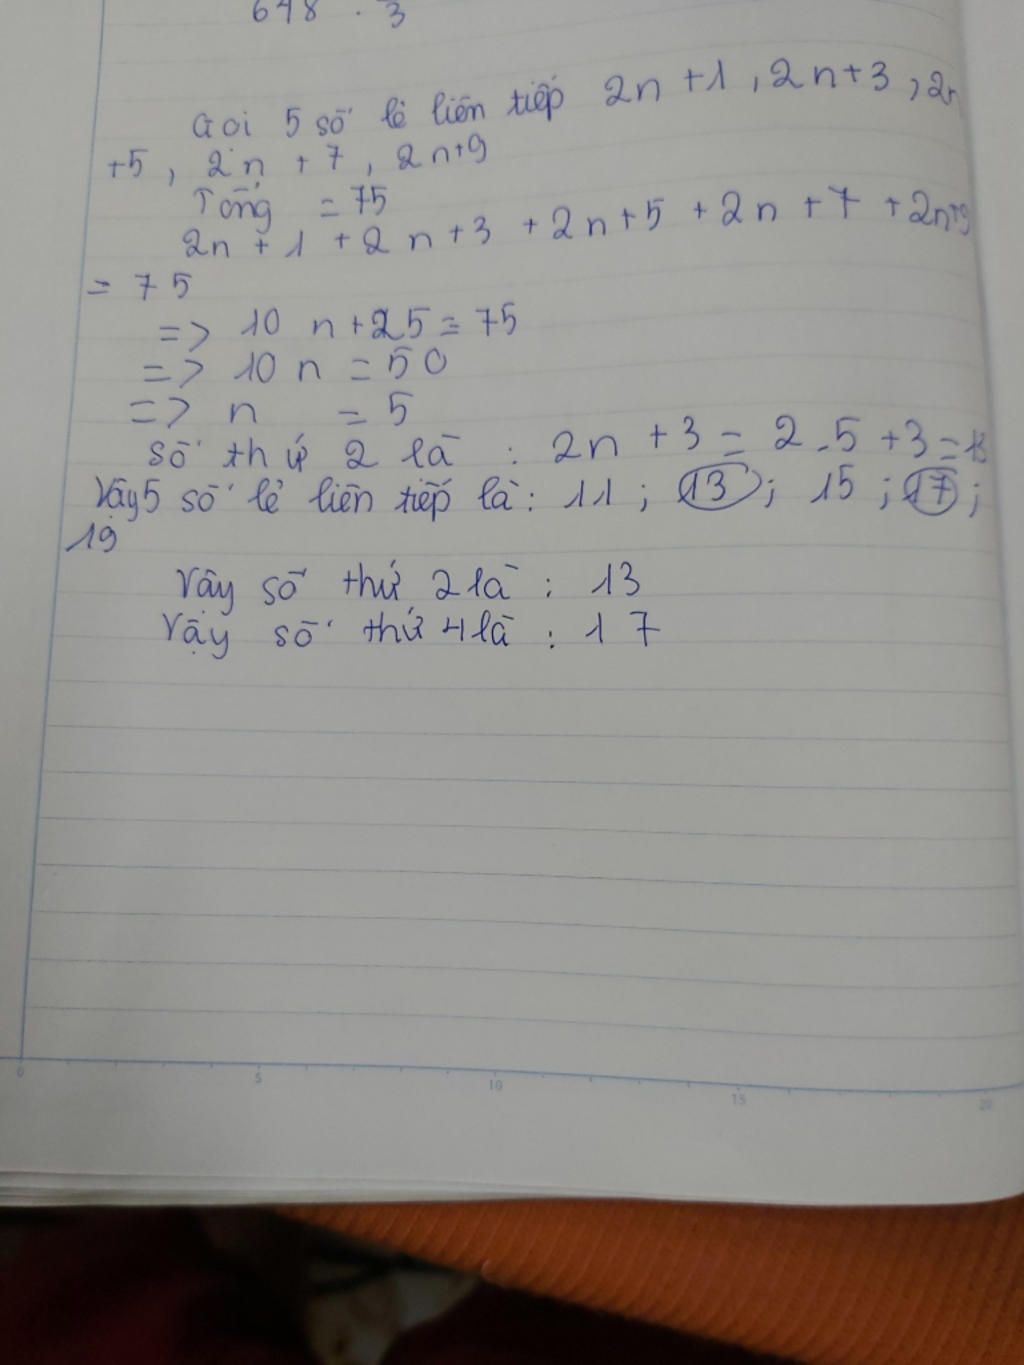 648 . 3
Gọi 5 số lẻ liên tiếp 2n + 1 , 2n + 3 , 2n
+5 , 2n + 7 , 2n+9
Tổng = 75
2n + 1 + 2n + 3 + 2n + 5 + 2n + 7 + 2n+9
= 75
=> 10 n + 25 = 75
=> 10 n = 50
=> n = 5
số thứ 2 là : 2n + 3 = 2 . 5 + 3 = 13
Vậy 5 số lẻ liên tiếp là : 11 ; 13 ; 15 ; 17 ;
19
Vậy số thứ 2 là : 13
Vậy số thứ 4 là : 17
0 5 10 15 20